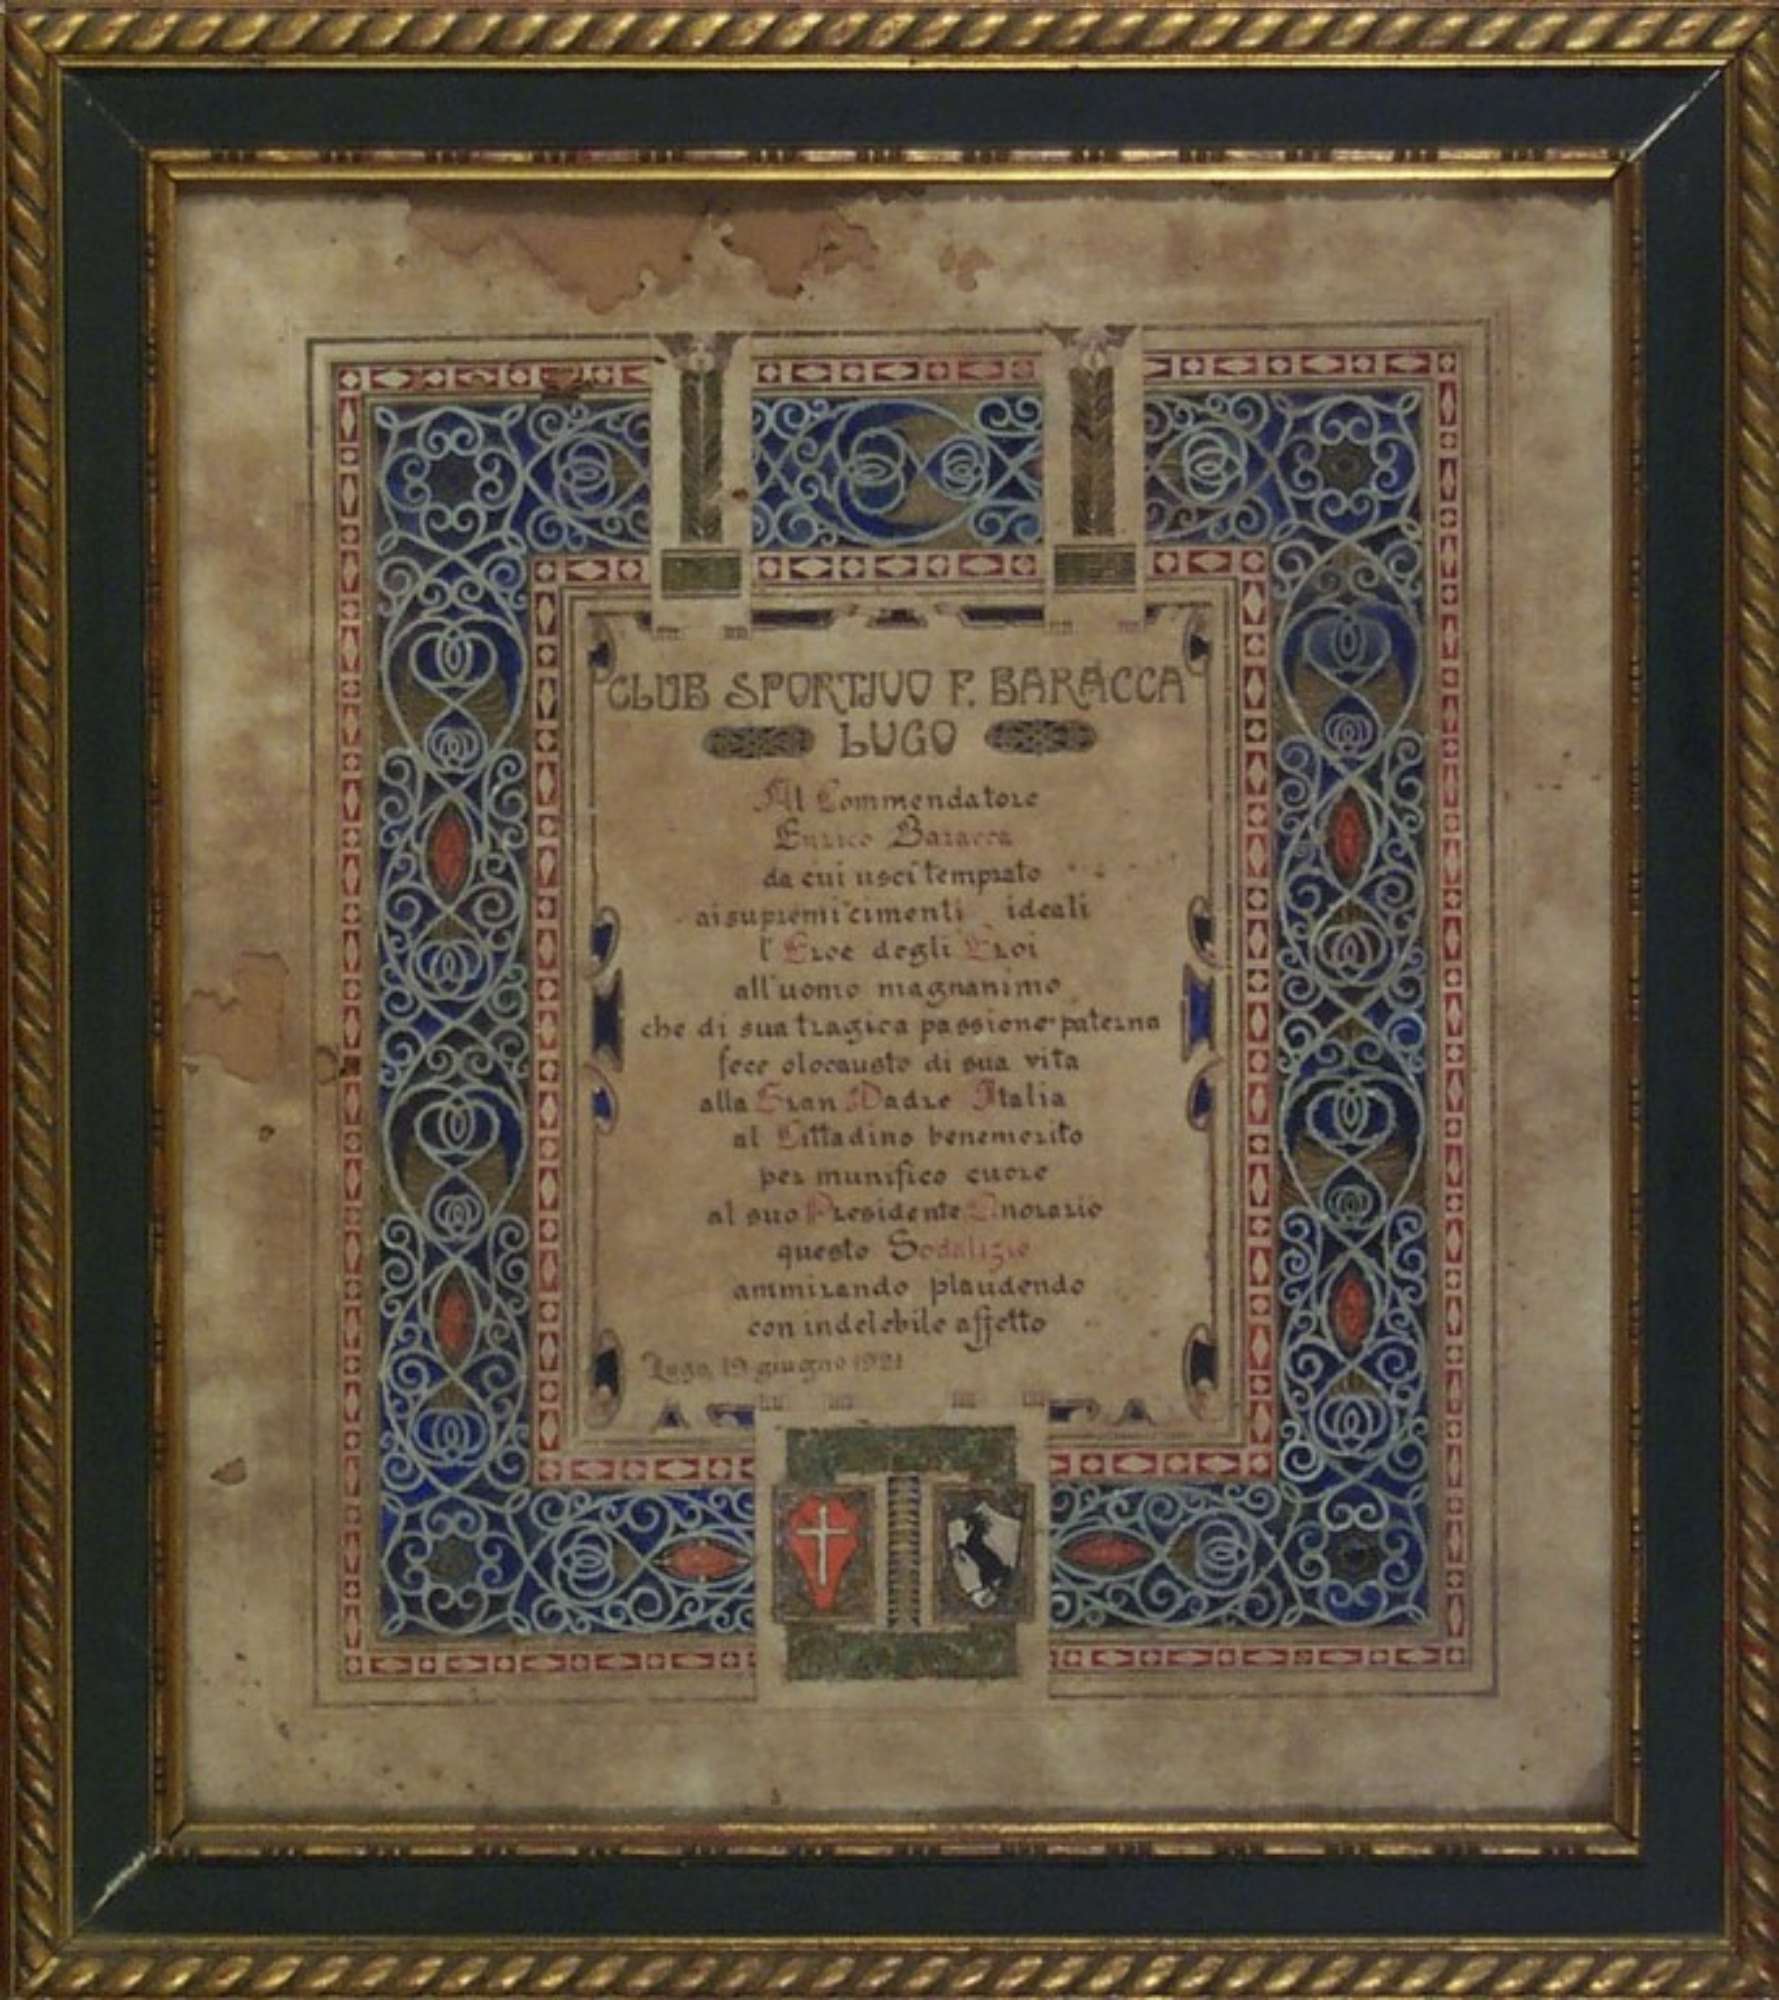 CLUB SPORTIVO F. BARACCA
LUGO
Al Commendatore
Enrico Baracca
da cui uscì temprato
ai supremi cimenti ideali
l'Eroe degli Eroi
all'uomo magnanimo
che di sua tragica passione paterna
fece olocausto di sua vita
alla Gran Madre Italia
al Cittadino benemerito
per munifico cuore
al suo Presidente Onorario
questo Sodalizio
ammirando plaudendo
con indelebile affetto
Lugo, 19 giugno 1921